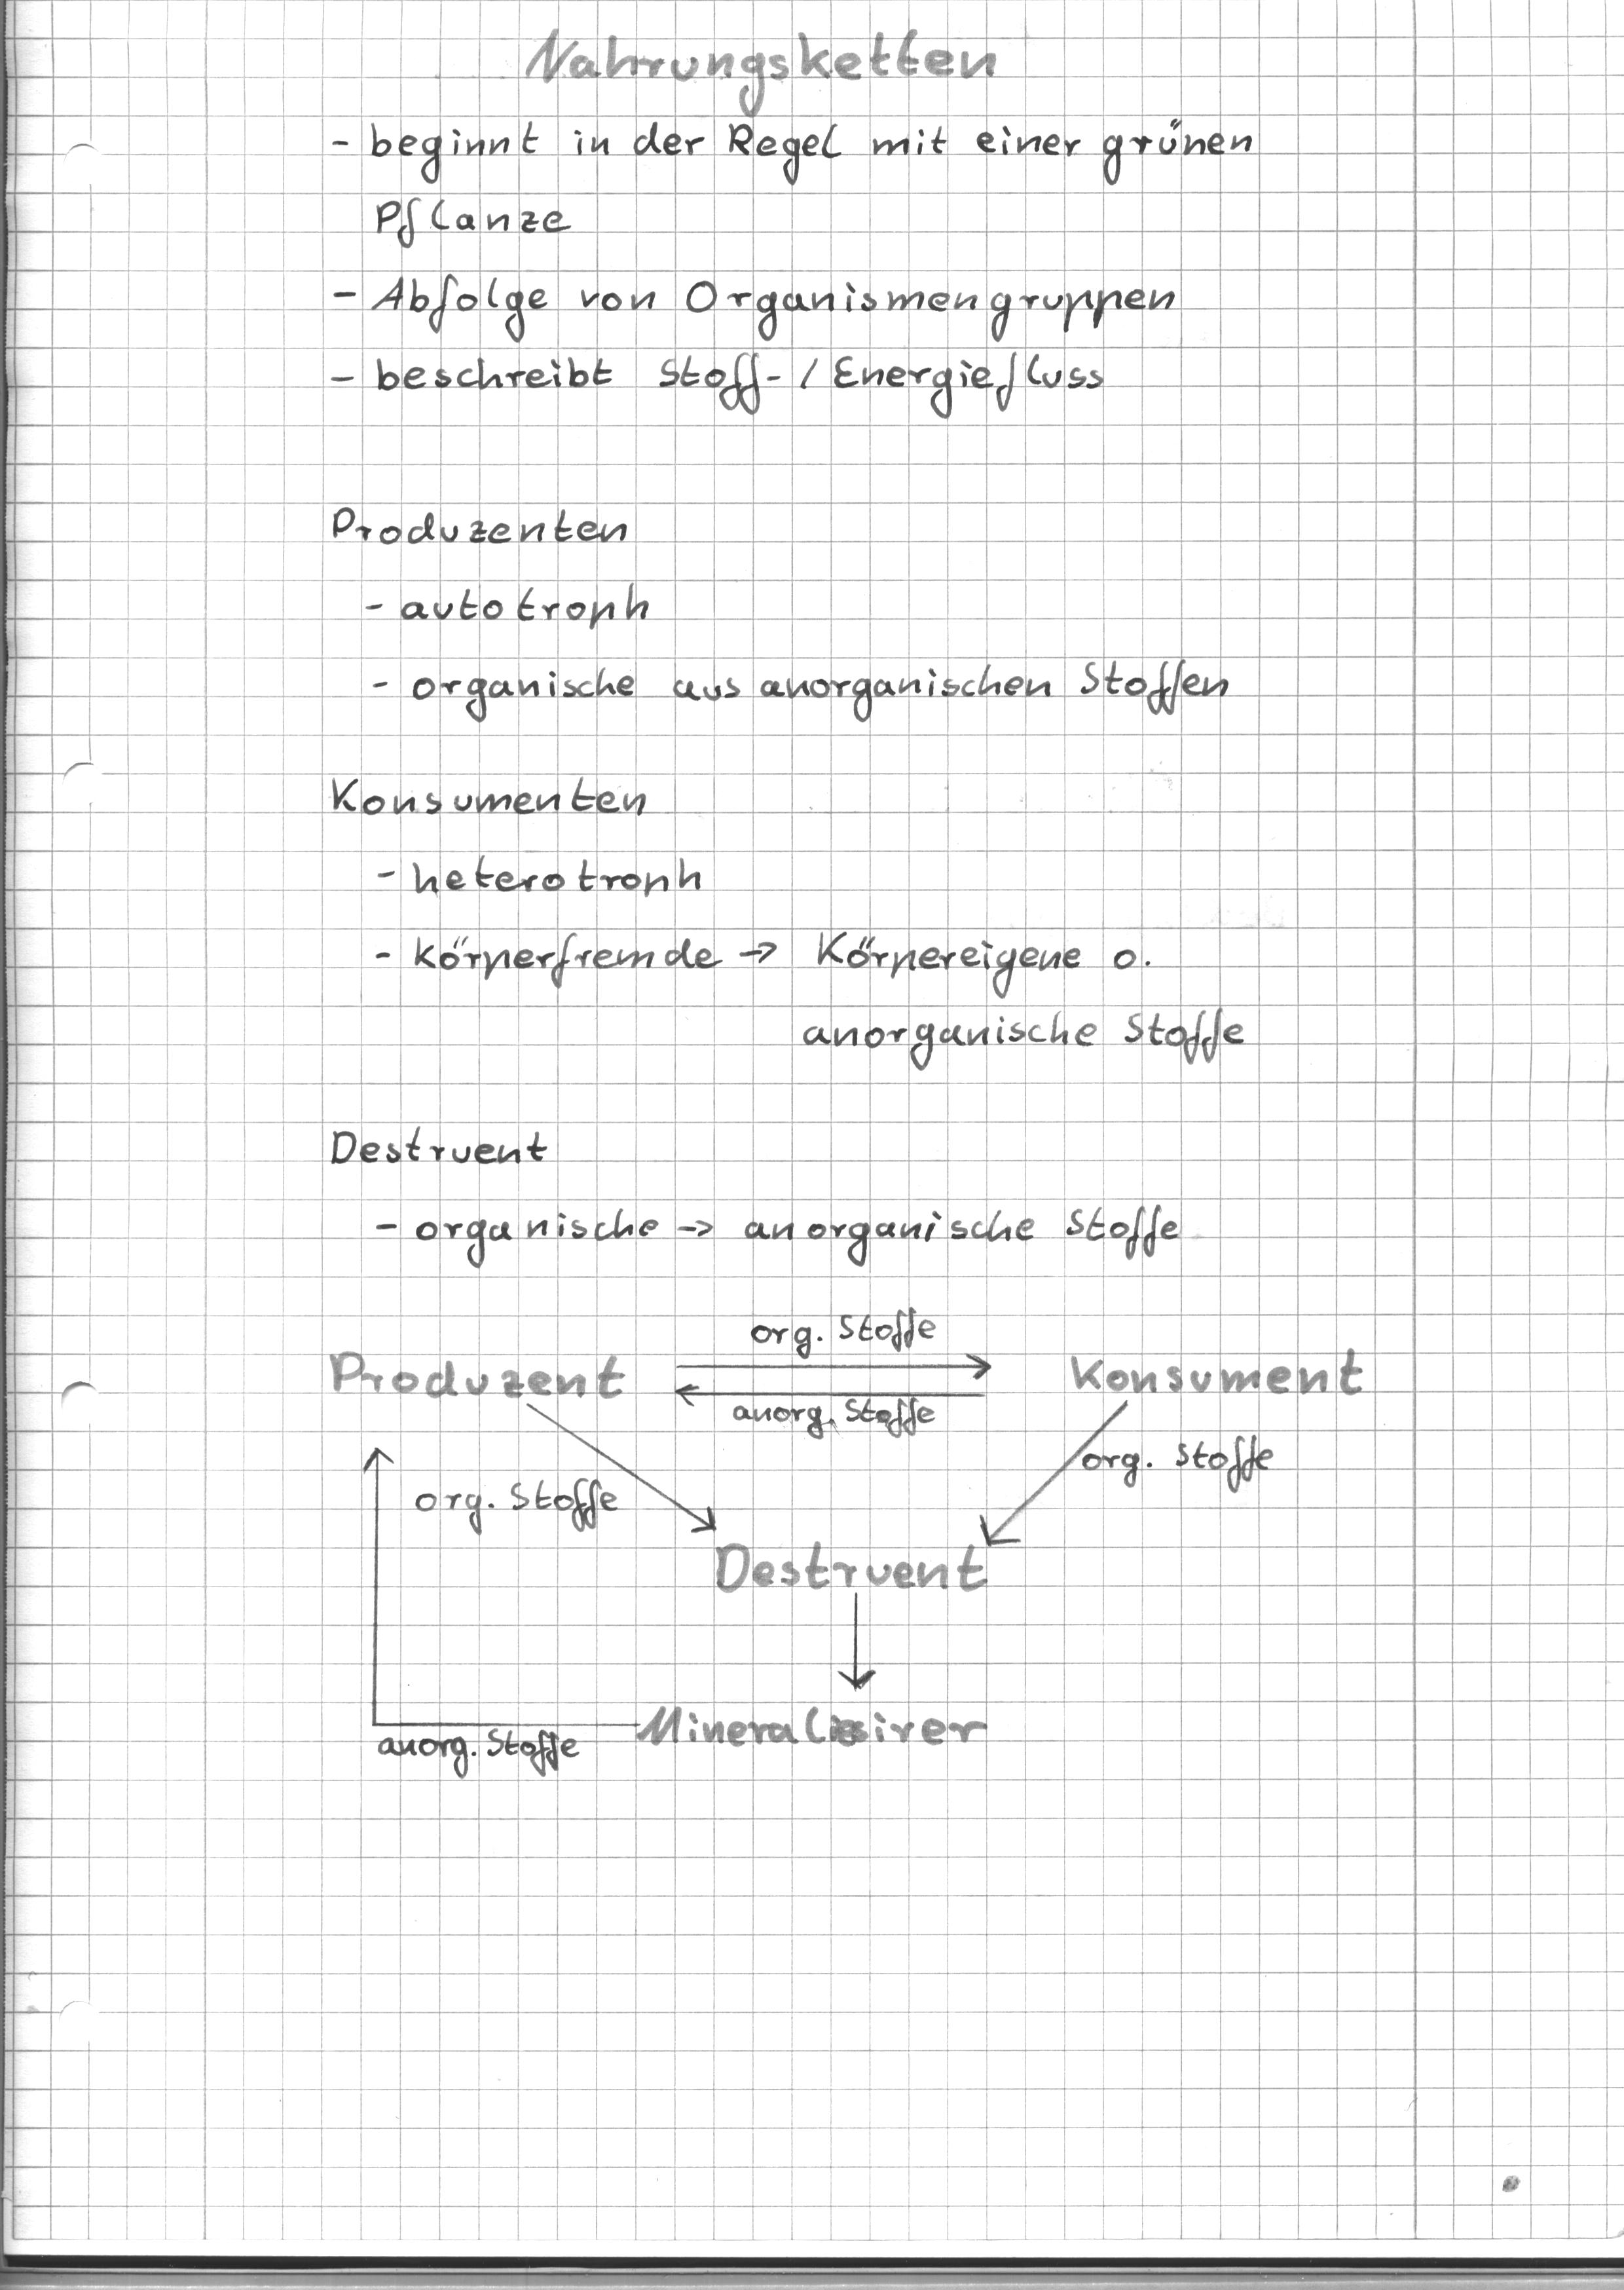 Nahrungsketten
- beginnt in der Regel mit einer grünen
Pflanze
- Abfolge von Organismengruppen
- beschreibt Stoff- / Energiefluss
Produzenten
- autotroph
- organische aus anorganischen Stoffen
Konsumenten
- heterotroph
- körperfremde → Körpereigene o.
anorganische Stoffe
Destruent
- organische → anorganische Stoffe
org. Stoffe
Produzent Konsument
anorg. Stoffe
org. Stoffe
org. Stoffe
Destruent
Mineralisirer
anorg. Stoffe